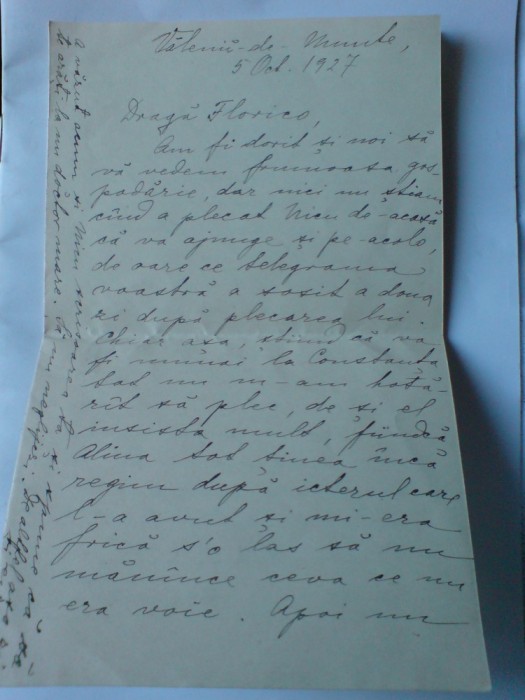 Vălenii-de-Munte,
5 Oct. 1927
Dragă Florico,
Am fi dorit și noi să
vă vedem frumoasa gos-
podărie, dar nici nu știam
cînd a plecat Nicu de-acasă
că va ajunge și pe-acolo,
de oare ce telegrama
voastră a sosit a doua
zi după plecarea lui.
Chiar așa, știind că va
fi numai la Constanța
tot nu m-am hotă-
rît să plec, de și el
insista mult, fiindcă
Alina tot ținea încă
regim după icterul care
l-a avut și mi-era
frică s'o las să nu
mănînce ceva ce nu
era voie. Apoi nu
A văzut acum și Nicu scrisoarea ta și spune să
te arăți la un doctor mare. Să nu neglijezi.